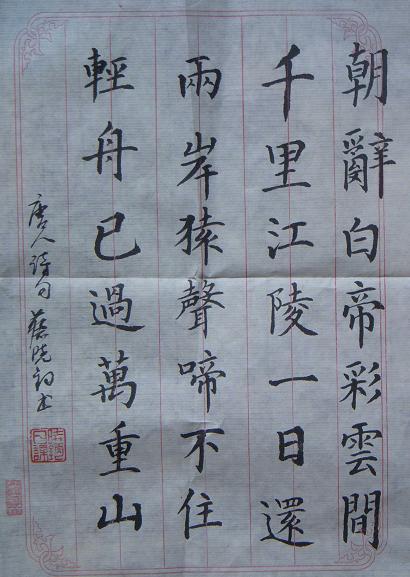 朝辭白帝彩雲間
千里江陵一日還
兩岸猿聲啼不住
輕舟已過萬重山
唐人詩句